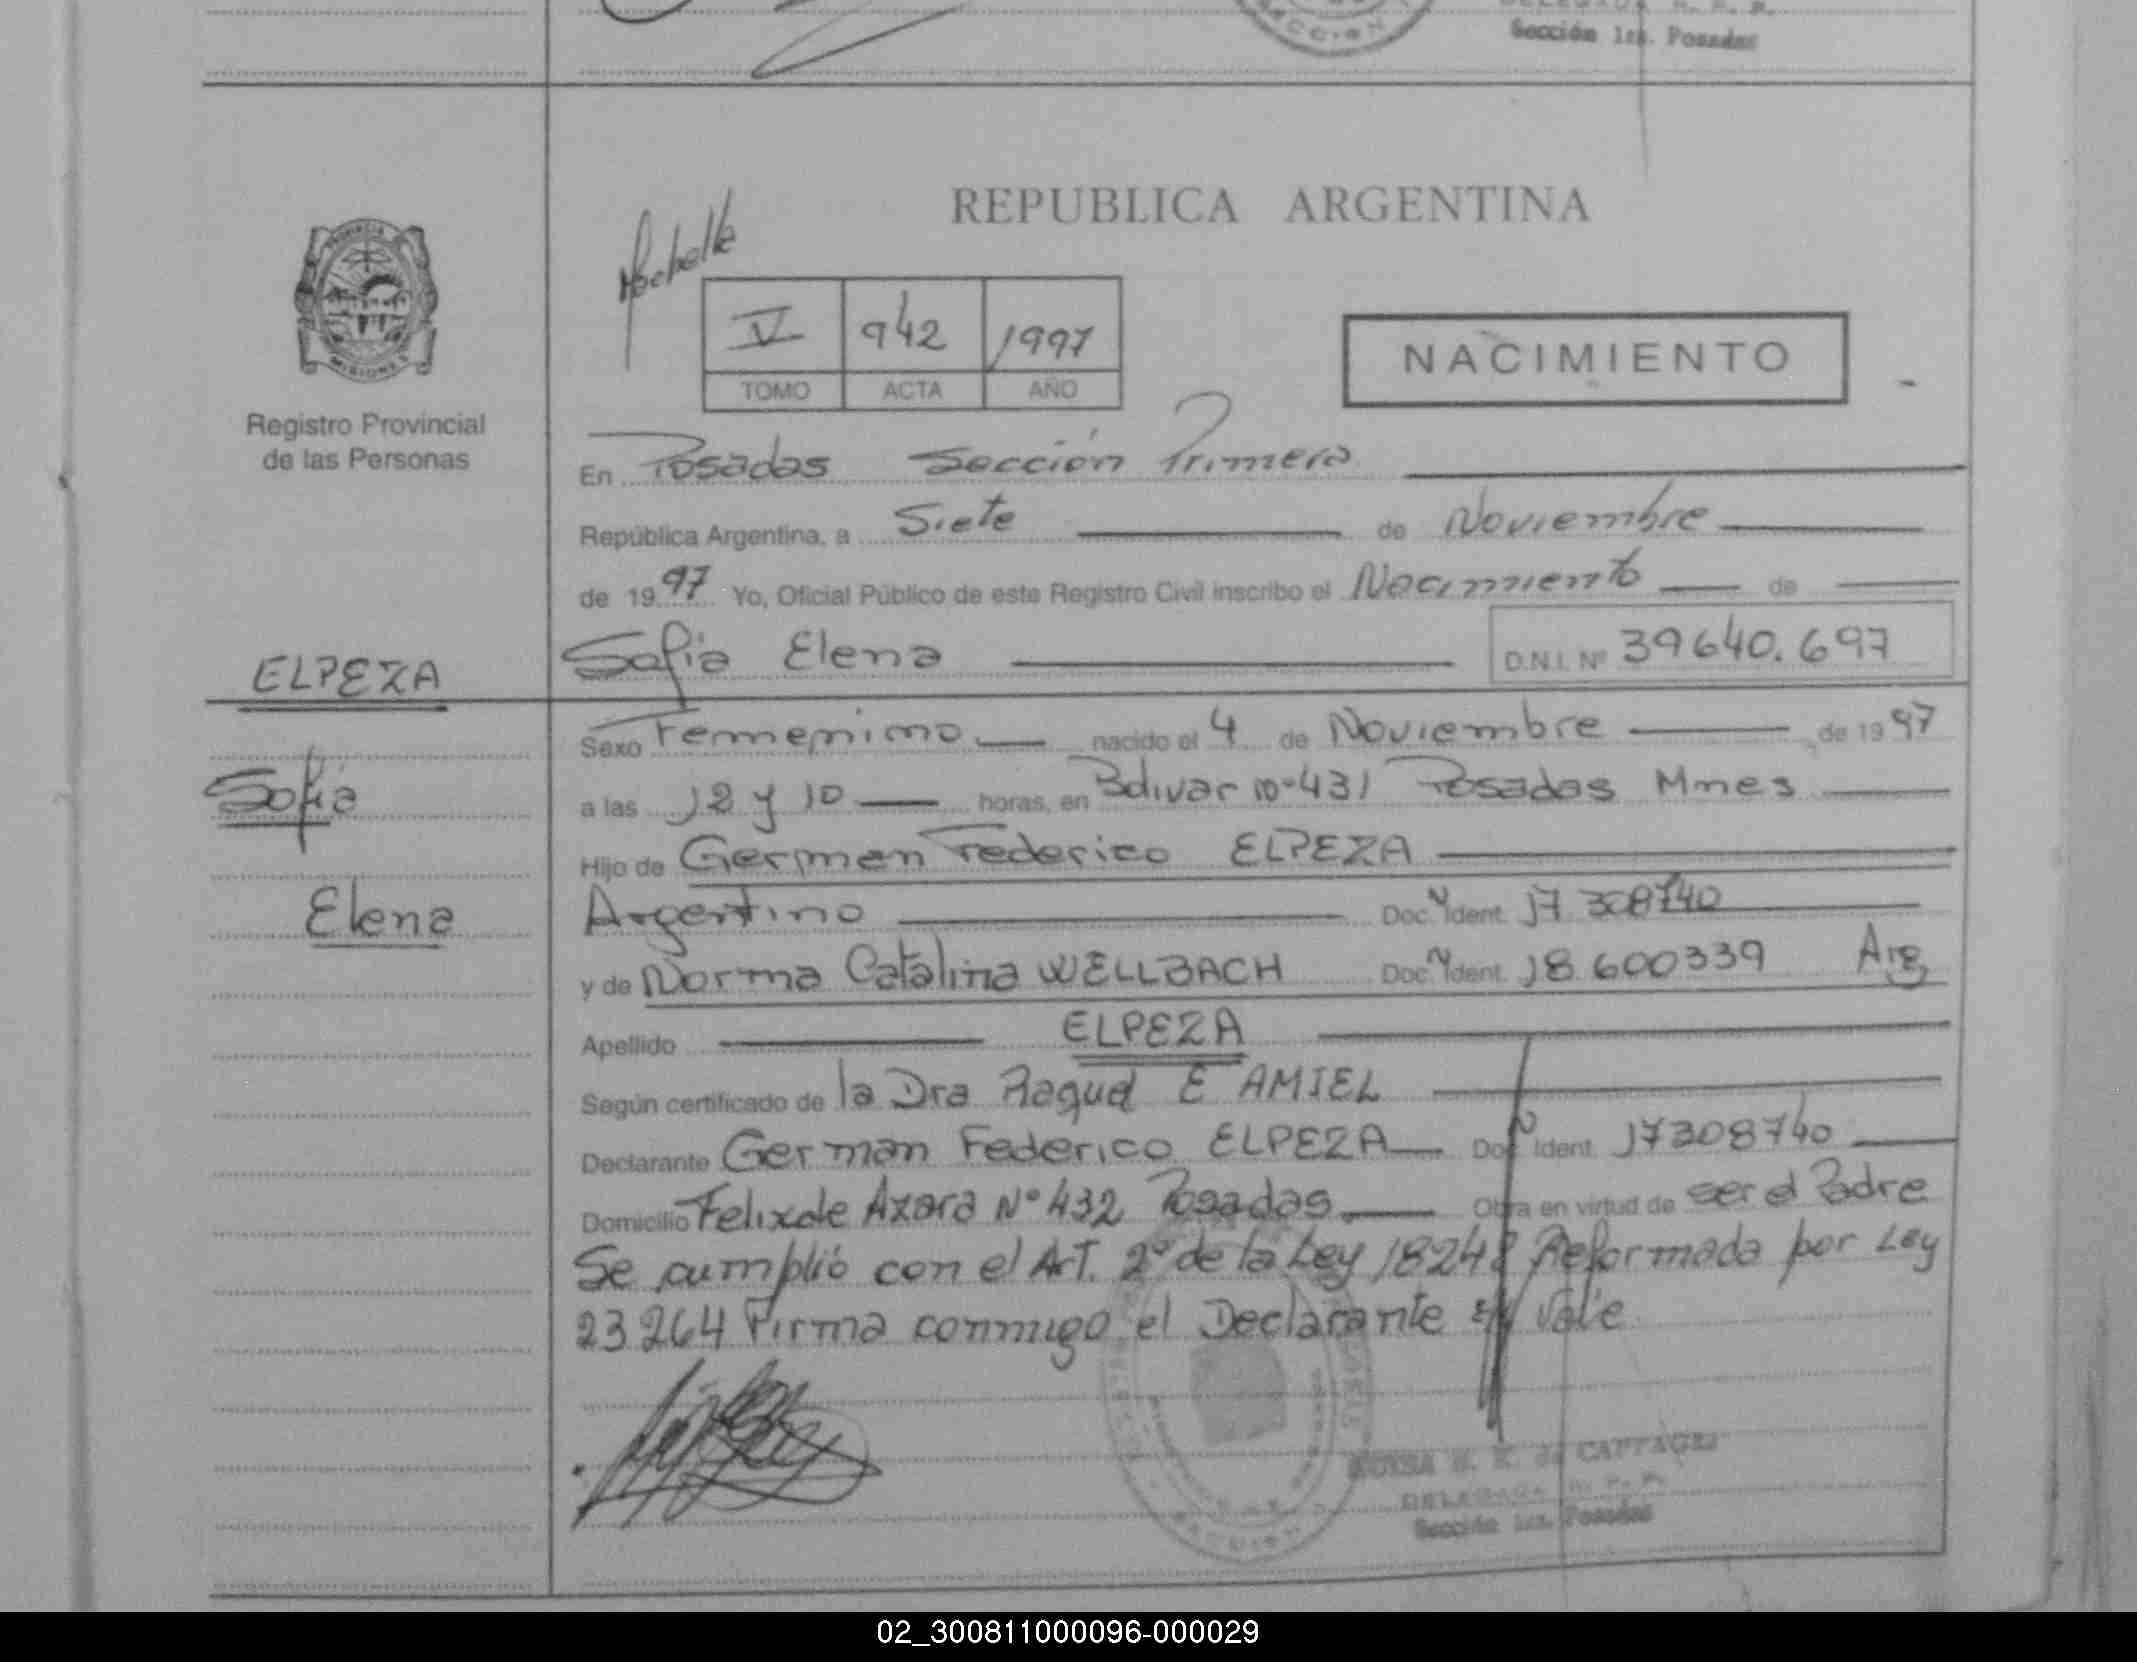 Sección 1ra. Posadas
REPUBLICA ARGENTINA
PROVINCIA
MISIONES
Registro Provincial
de las Personas
V 942 1997
TOMO ACTA AÑO
NACIMIENTO
En Posadas Sección Primera
República Argentina, a Siete de Noviembre
de 1997 Yo, Oficial Público de este Registro Civil inscribo el Nacimiento de
ELPEZA
Sofia Elena D.N.I. Nº 39640.697
Sexo Femenino nacido el 4 de Noviembre de 1997
Sofia
a las 12 y 10 horas, en Bolivar nº 431 Posadas Mnes
Hijo de German Federico ELPEZA
Elena
Argentino Doc. Ident. 17 308740
y de Norma Catalina WELLBACH Doc. Ident. 18.600339 Arg
Apellido ELPEZA
Según certificado de la Dra Raquel E AMIEL
Declarante German Federico ELPEZA Doc. Ident. 17308740
Domicilio Felix de Azara Nº 432 Posadas Obra en virtud de ser el Padre
Se cumplió con el Art. 2º de la Ley 18248 Reformada por Ley
23264 Firma conmigo el Declarante Vale
DELEGADA R. P. P.
Sección 1ra. Posadas
02_300811000096-000029